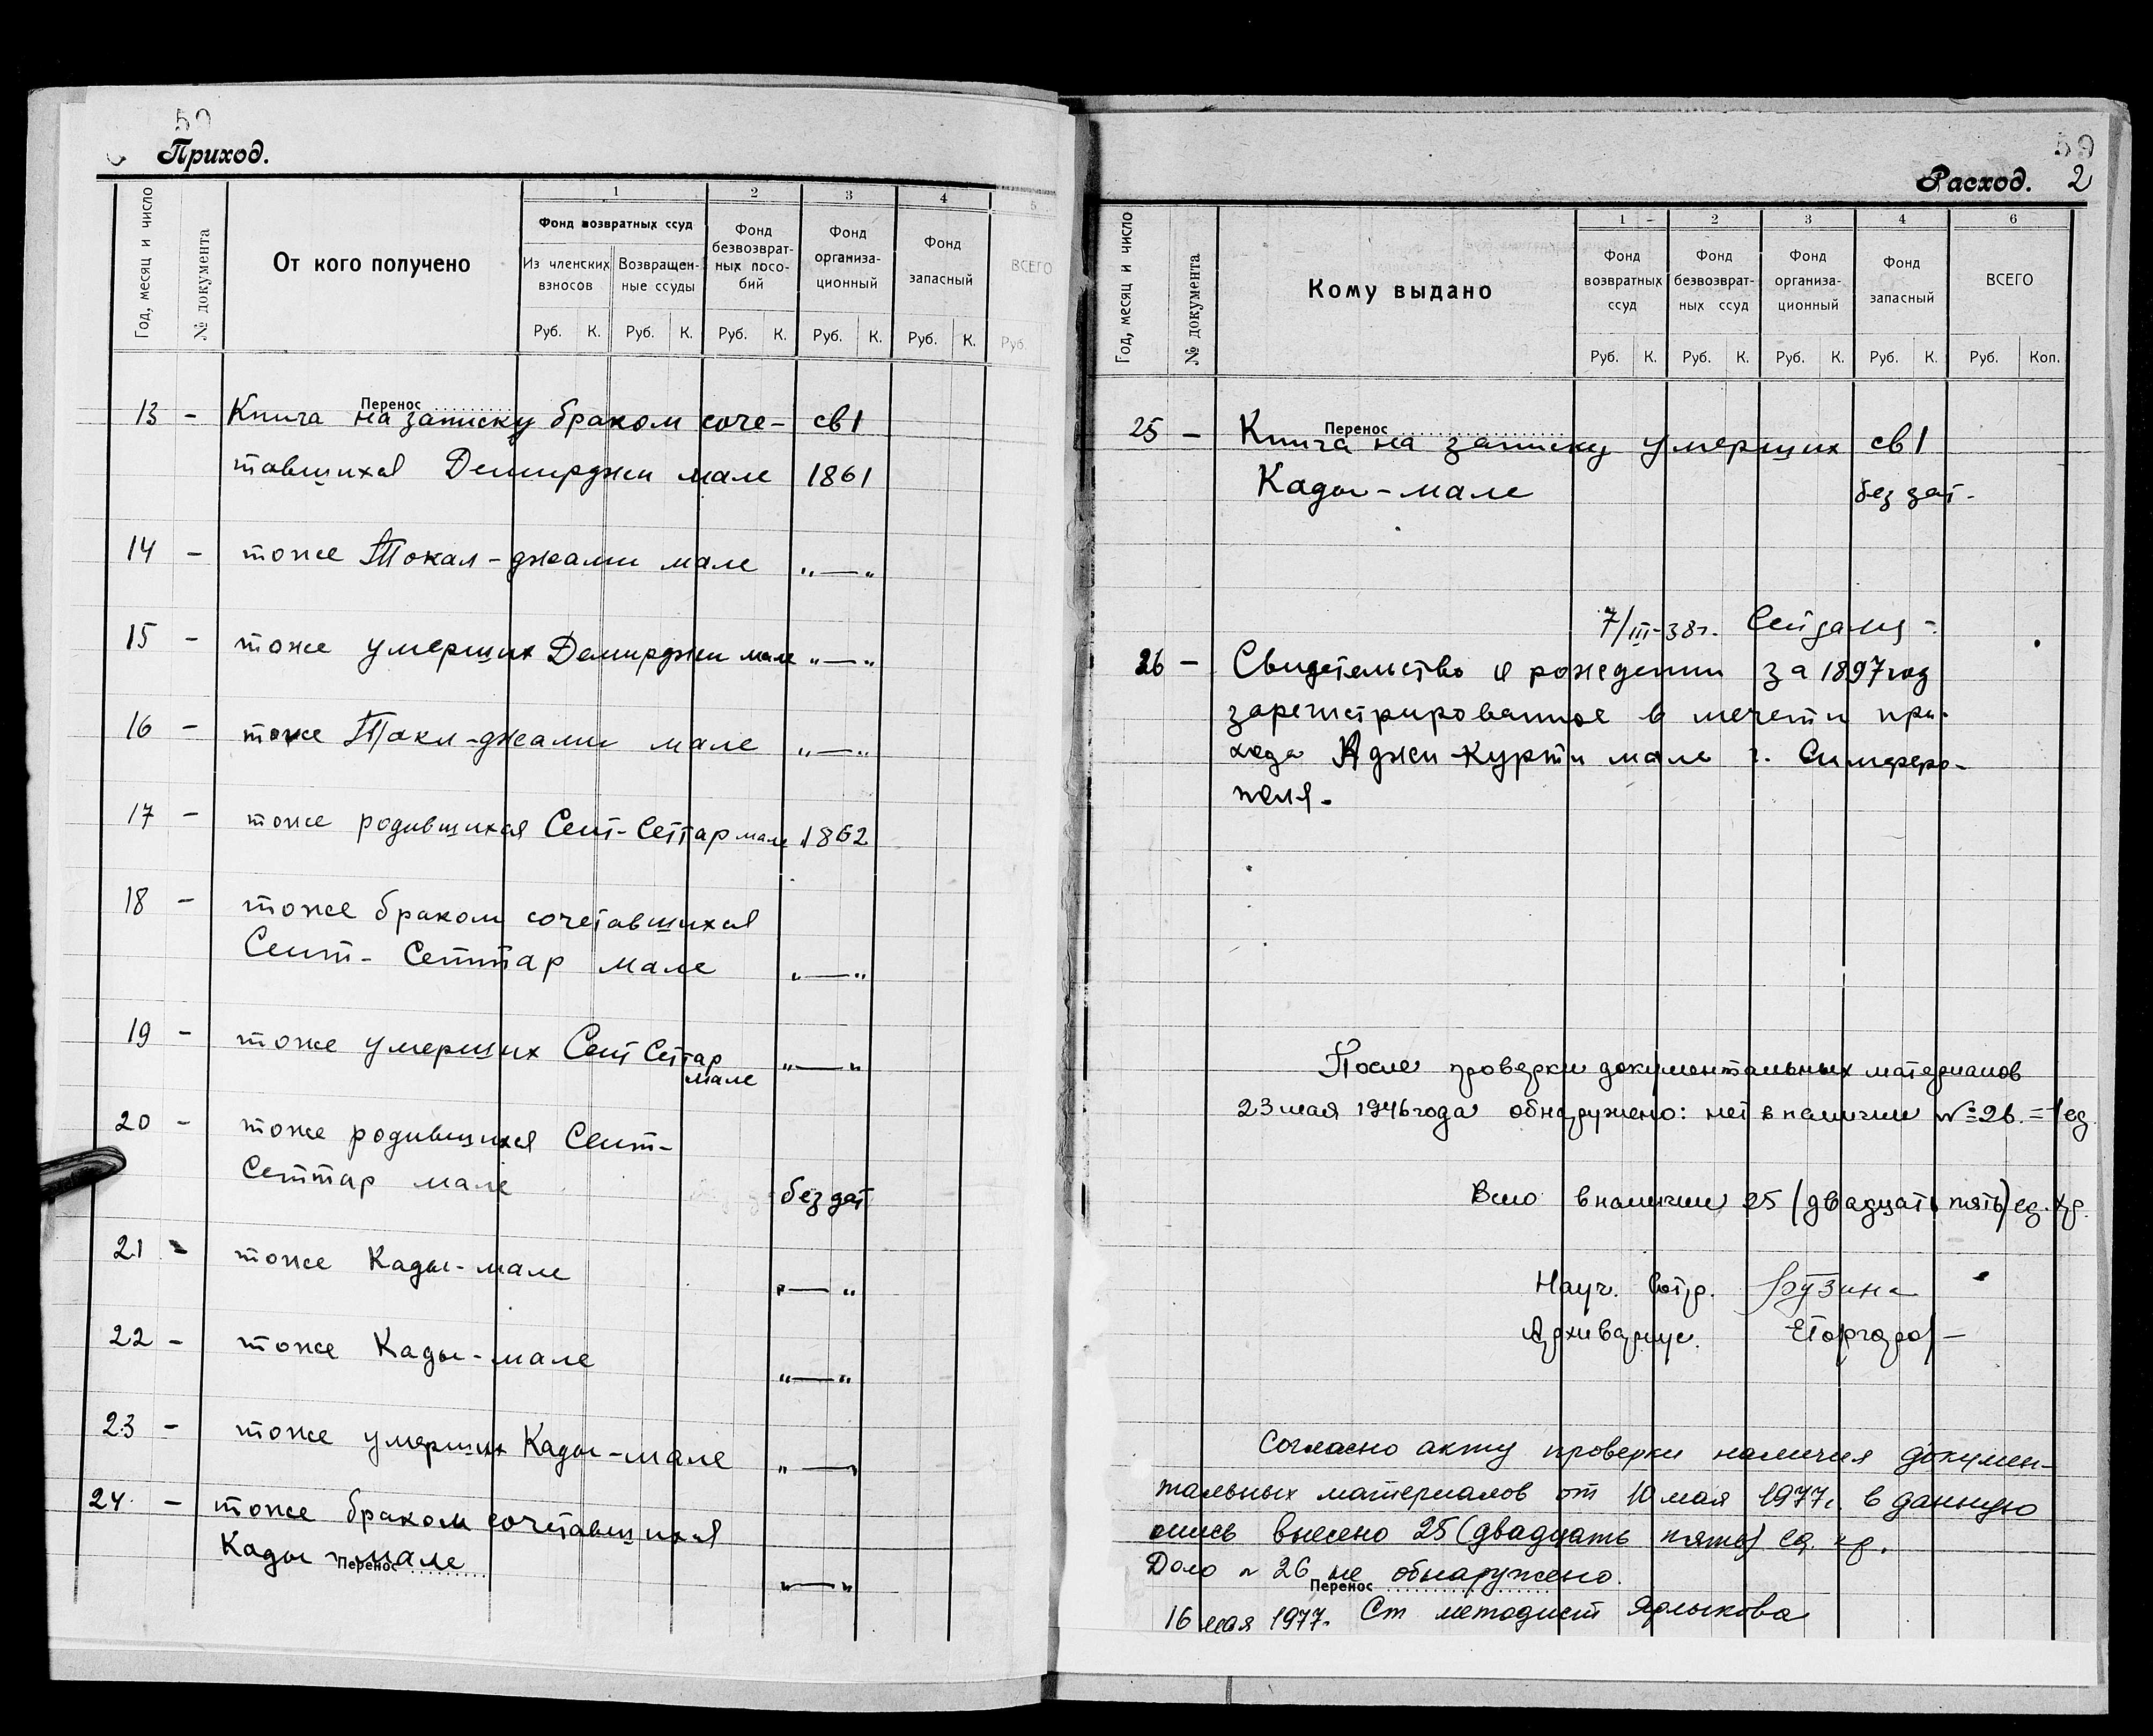 59
Приход.
Год, месяц и число
№ документа
От кого получено
1
Фонд возвратных ссуд
Из членских взносов
Возвращен-
ные ссуды
2
Фонд
безвозврат-
ных посо-
бий
3
Фонд
организа-
ционный
4
Фонд
запасный
5
ВСЕГО
Руб. К. Руб. К. Руб. К. Руб. К. Руб. К. Руб.
Перенос
13 - Книга на записку браком соче- св 1
тавшихся Демирджи мале 1861
14 - тоже Токал-джами мале „—„
15 - тоже умерших Демирджи мале „—„
16 - тоже Токл-джами мале „—„
17 - тоже родившихся Сеит-Сеттар мале 1862
18 - тоже браком сочетавшихся
Сеит- Сеттар мале „—„
19 - тоже умерших Сеит Сеттар
мале „—„
20 - тоже родившихся Сеит-
Сеттар мале без дат
21 - тоже Кады-мале „—„
22 - тоже Кады-мале „—„
23 - тоже умерших Кады-мале „—„
24. - тоже браком сочетавшихся
Кады мале „—„
Перенос
59
Расход. 2
Год, месяц и число
№ документа
Кому выдано
1
Фонд
возвратных
ссуд
2
Фонд
безвозврат-
ных ссуд
3
Фонд
организа-
ционный
4
Фонд
запасный
6
ВСЕГО
Руб. К. Руб. К. Руб. К. Руб. К. Руб. Коп.
Перенос
25 - Книга на записку умерших св 1
Кады-мале без дат-
7/III-38г.
26 - Свидетельство о рождении за 1897 год
зарегистрированное в мечети при-
хода Аджи-Курти мале г. Симферо-
поля.
После проверки документальных материалов
23 мая 1946 года обнаружено: нет в наличии № 26. = 1 ед
Всего в наличии 25 (двадцать пять) ед. хр.
Науч. сотр.
Архивариус.
Согласно акту проверки наличия докумен-
тальных материалов от 10 мая 1977г. в данную
опись внесено 25 (двадцать пять) ед. хр.
Дело № 26 не обнаружено.
Перенос
16 мая 1977. Ст методист Ярлыкова